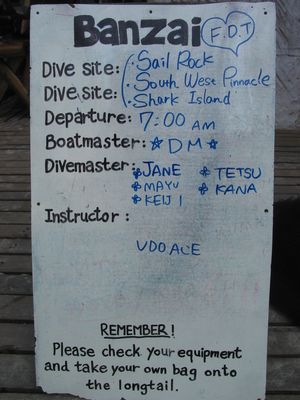 Banzai F.D.T
Dive site: Sail Rock
Dive site: South West Pinnacle
Shark Island
Departure: 7:00 AM
Boatmaster: DM
Divemaster: JANE TETSU
MAYU KANA
KEIJI
Instructor :
UDO ACE
REMEMBER!
Please check your equipment
and take your own bag onto
the longtail.